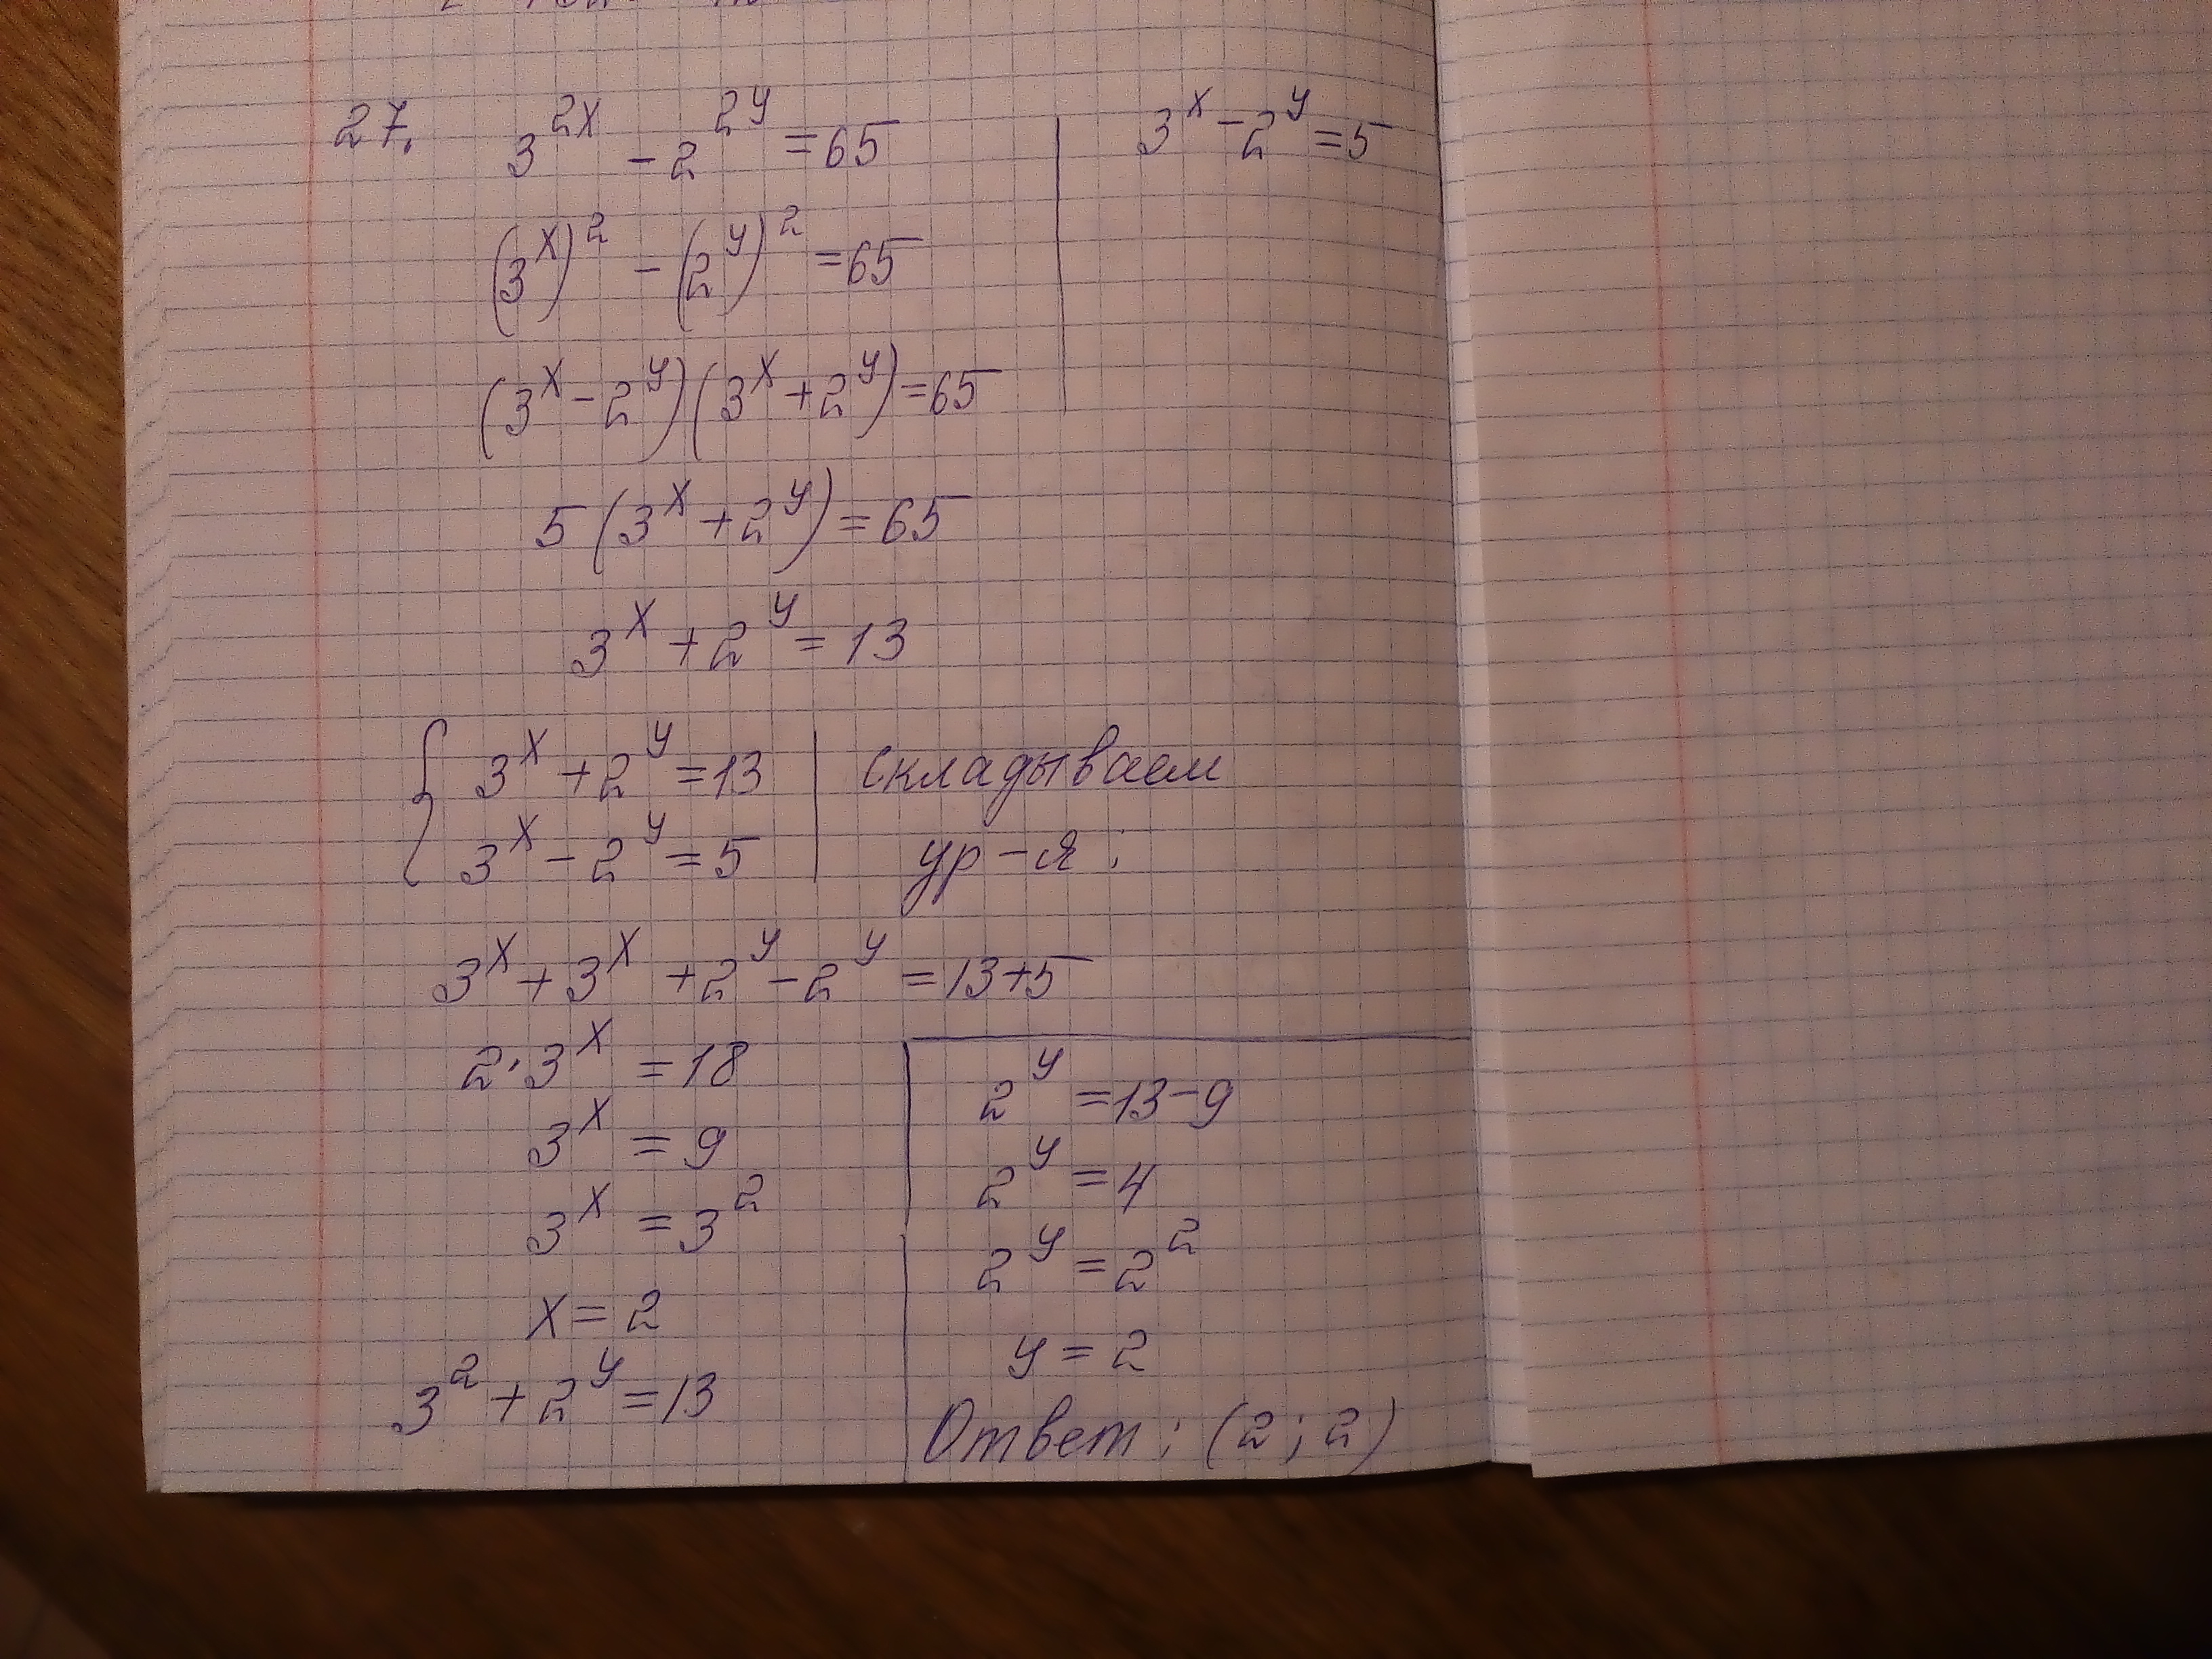 27. 3^{2x} - 2^{2y} = 65 | 3^x - 2^y = 5
(3^x)^2 - (2^y)^2 = 65
(3^x - 2^y)(3^x + 2^y) = 65
5(3^x + 2^y) = 65
3^x + 2^y = 13
{ 3^x + 2^y = 13 | складываем
3^x - 2^y = 5 | ур-я:
3^x + 3^x + 2^y - 2^y = 13+5
2·3^x = 18
3^x = 9
3^x = 3^2
x = 2
3^2 + 2^y = 13
2^y = 13-9
2^y = 4
2^y = 2^2
y = 2
Ответ: (2; 2)